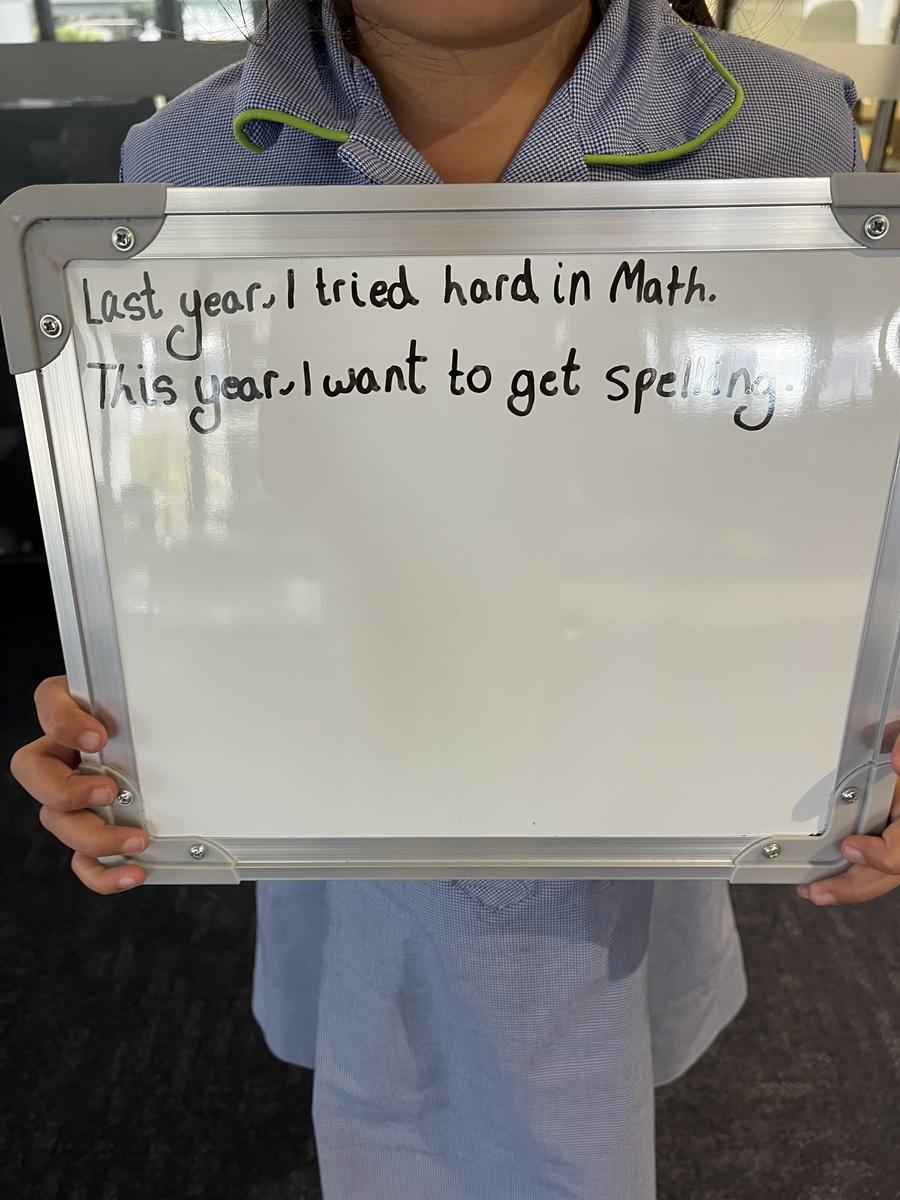 Last year, I tried hard in Math.
This year, I want to get spelling.